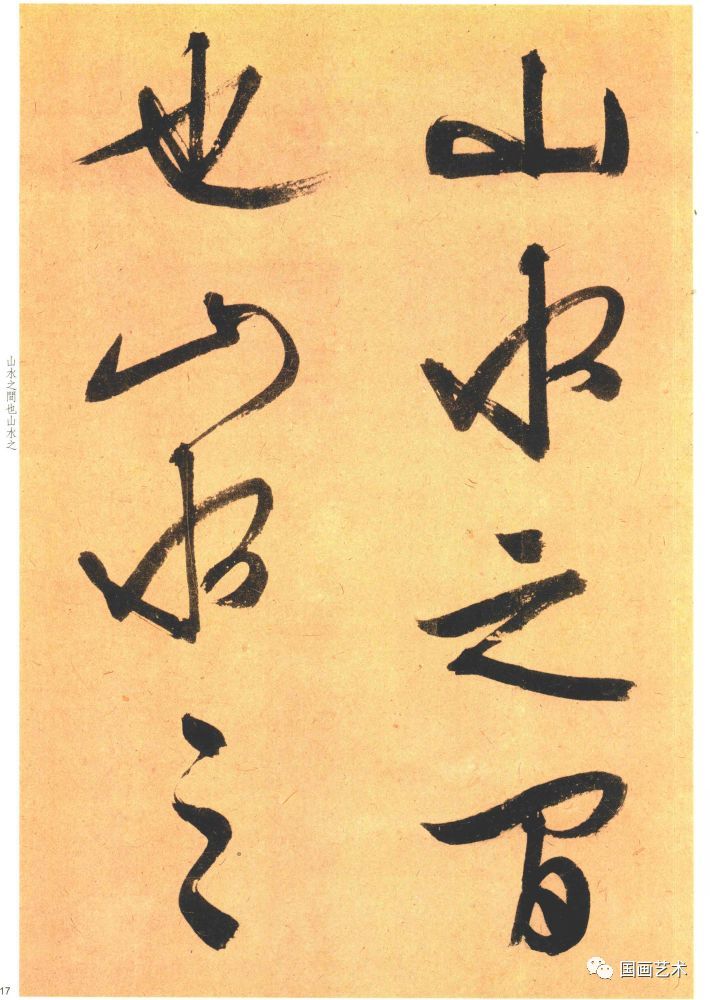 山水之間
也山水之
山水之間也山水之
17
国画艺术